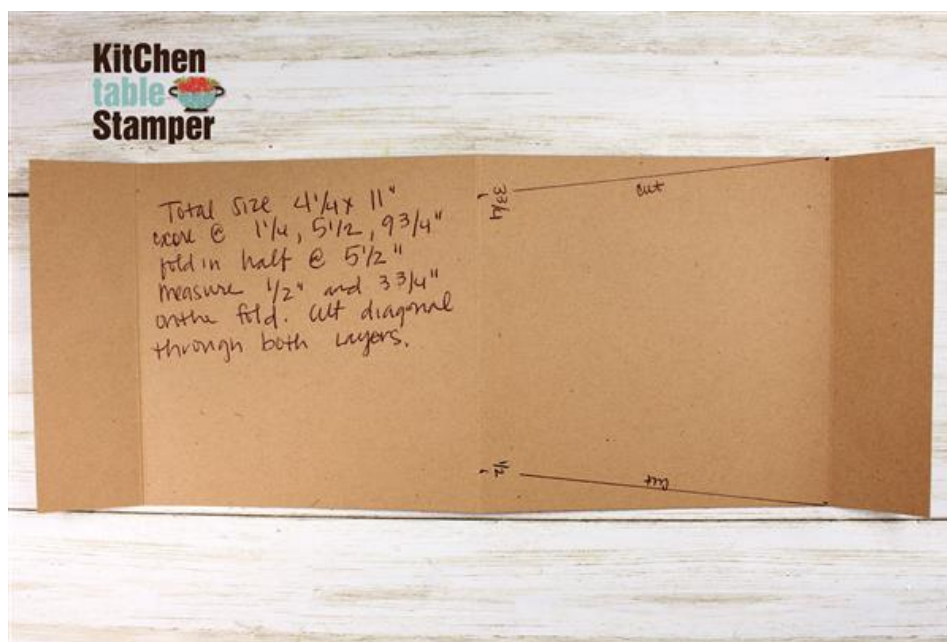 KitChen
table
Stamper
Total Size 4 1/4 x 11"
score @ 1 1/4, 5 1/2, 9 3/4"
fold in half @ 5 1/2"
measure 1/2" and 3 3/4"
on the fold. Cut diagonal
through both layers.
3 3/4
cut
1/2
cut